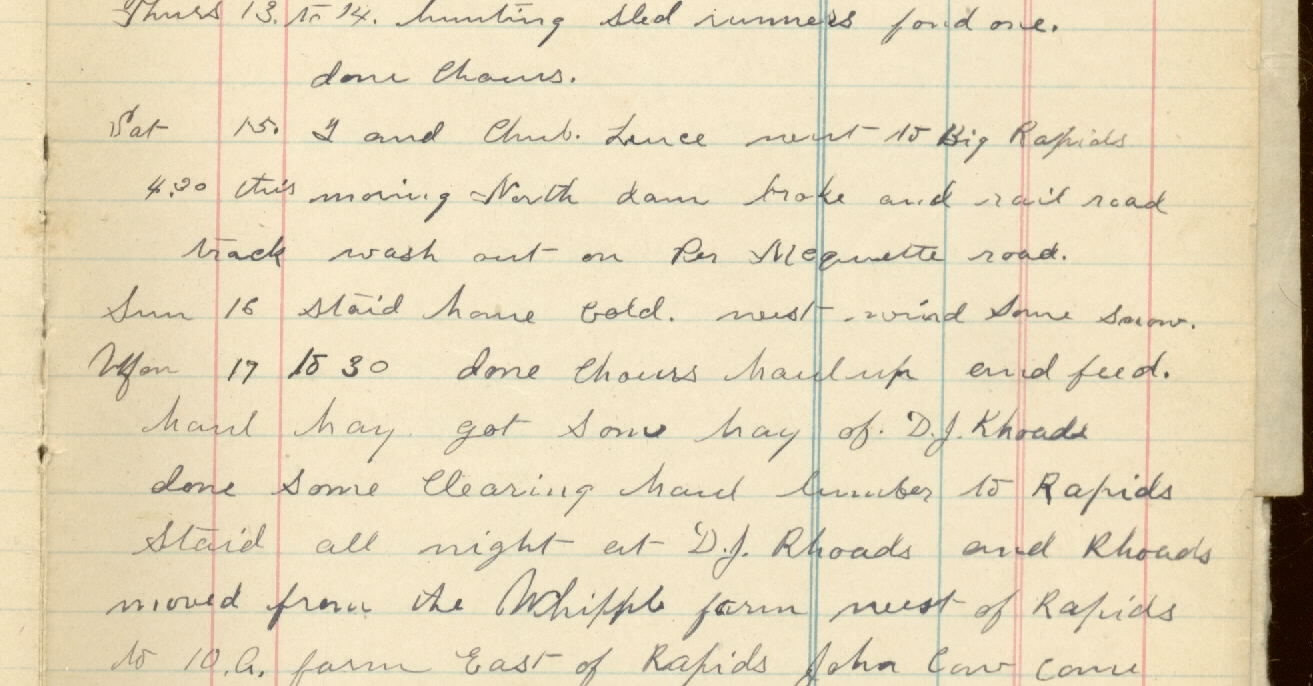 Thurs 13. to 14. hunting sled runners fond one.
done Chours.
Sat 15. I and Chub. Luce went to Big Rapids
4.30 this moring North dam broke and rail road
track wash out on Per Mcquette road.
Sun 16 staid home Cold. west wind Some snow.
Mon 17 to 30 done Chours haul up and feed.
haul hay. got Some hay of. D.J. Rhoads
done Some Clearing haul lumber to Rapids
Staid all night at D.J. Rhoads and Rhoads
moved from the Whipple farm west of Rapids
to 10.A. farm East of Rapids John come